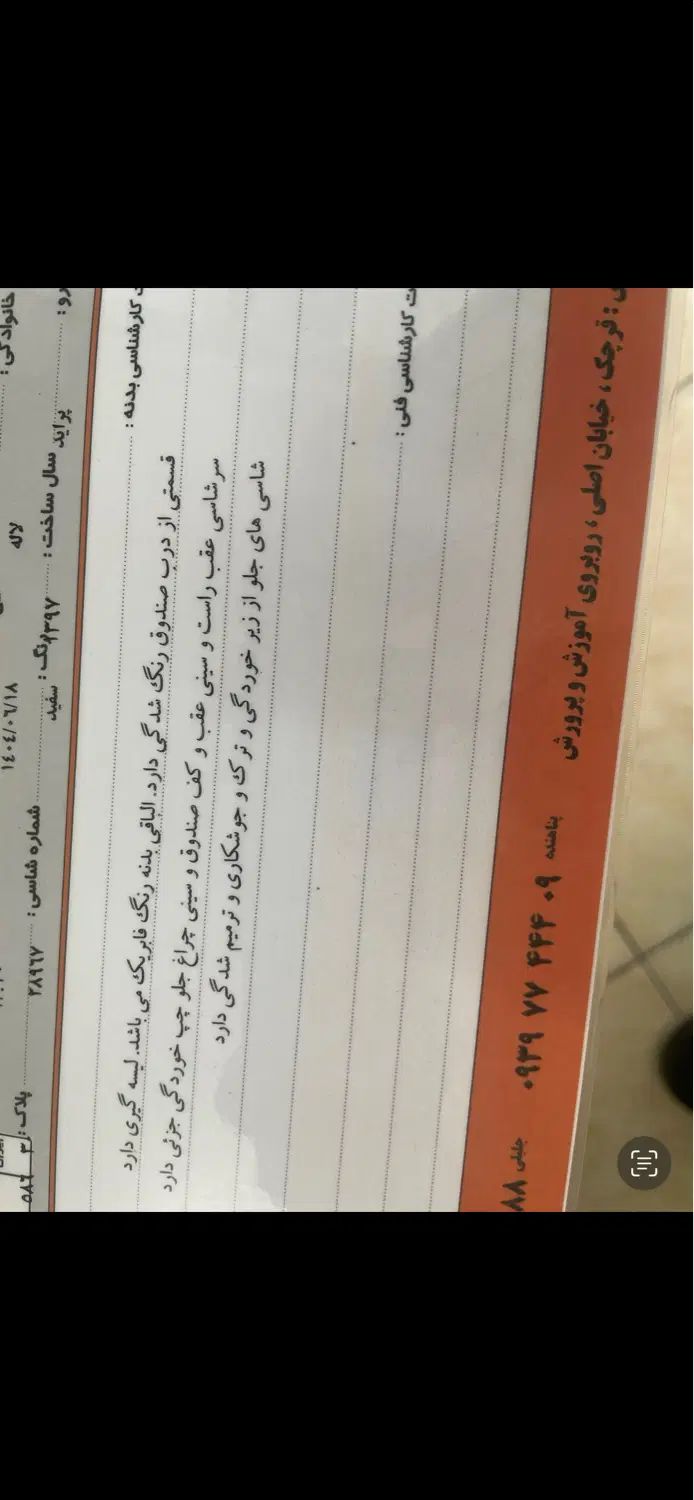 خانوادگی : لاله ۱٤۰٤/۰٦/۱۸
پراید سال ساخت : ۱۳۹۷ رنگ : سفید شماره شاسی : ۲۸۹٦۷ پلاک :
۵۸٦ ۳
کارشناسی بدنه :
قسمتی از درب صندوق رنگ شدگی دارد. الباقی بدنه رنگ فابریک می باشد. لیسه گیری دارد
سرشاسی عقب راست و سینی عقب و کف صندوق و سینی چراغ جلو چپ خوردگی جزئی دارد
شاسی های جلو از زیر خوردگی و ترک و جوشکاری و ترمیم شدگی دارد
کارشناسی فنی :
قرچک ، خیابان اصلی ، روبروی آموزش و پرورش
پناهنده ۰۹ ۴۴۴ ۷۷ ۰۹۳۹ جلیلی ۸۸